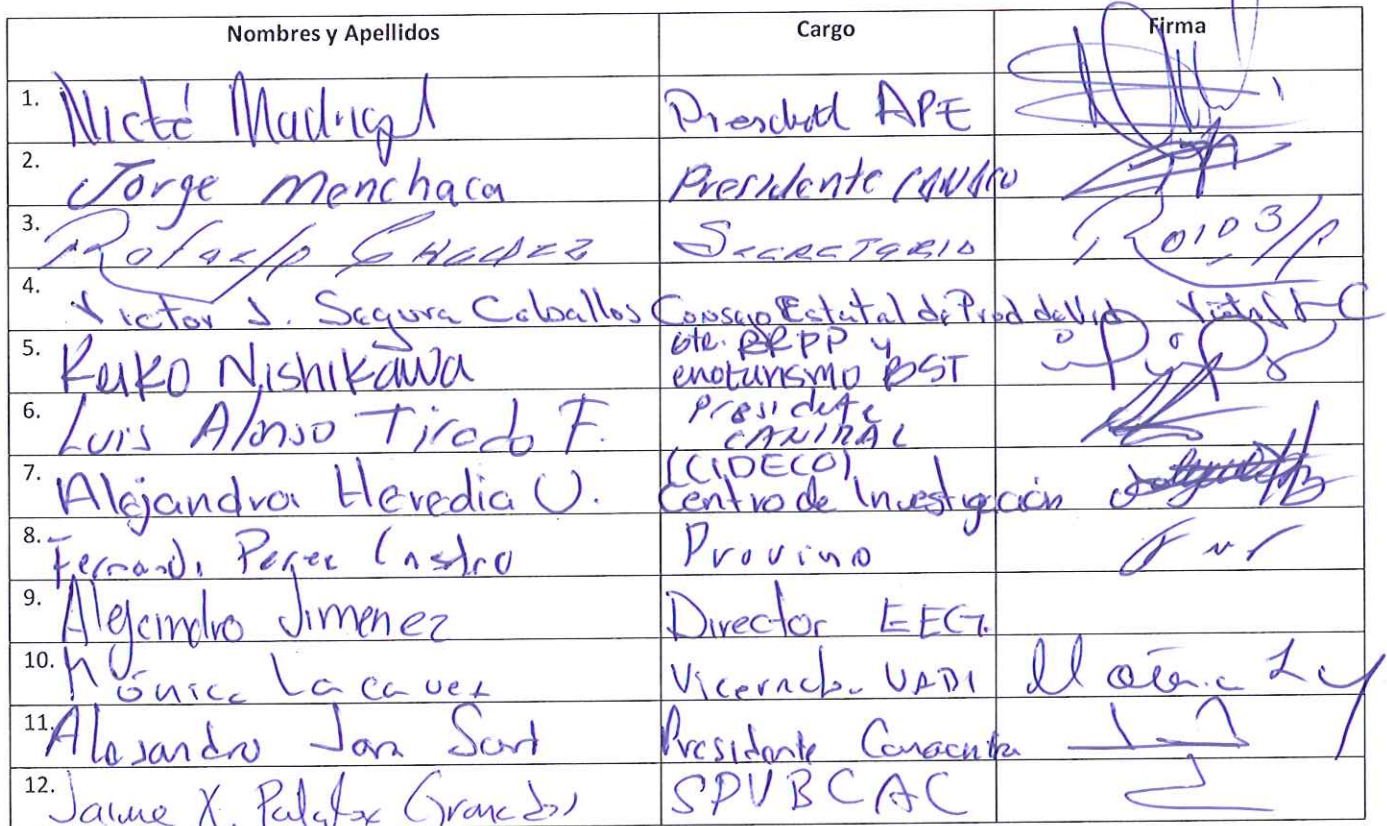 Nombres y Apellidos Cargo Firma
1. Nicté Madrigal APE
2. Jorge Menchaca Presidente
3. Rafael Chavez SECRETARIO
4. Victor J. Segura Caballos Consejo Estatal de Prod de Vid
5. Keiko Nishikawa Gte. RRPP y
enoturismo BST
6. Luis Alonso Tirado F. Presidete
CANIRAC
7. Alejandra Heredia U. (CIDECO)
Centro de Investigación
8. Fernando Perez Castro Provino
9. Alejandro Jimenez Director EEG.
10. Mónica Lacavex
11. Presidente
12. Jaime X. Palafox Granados SPVBCAC